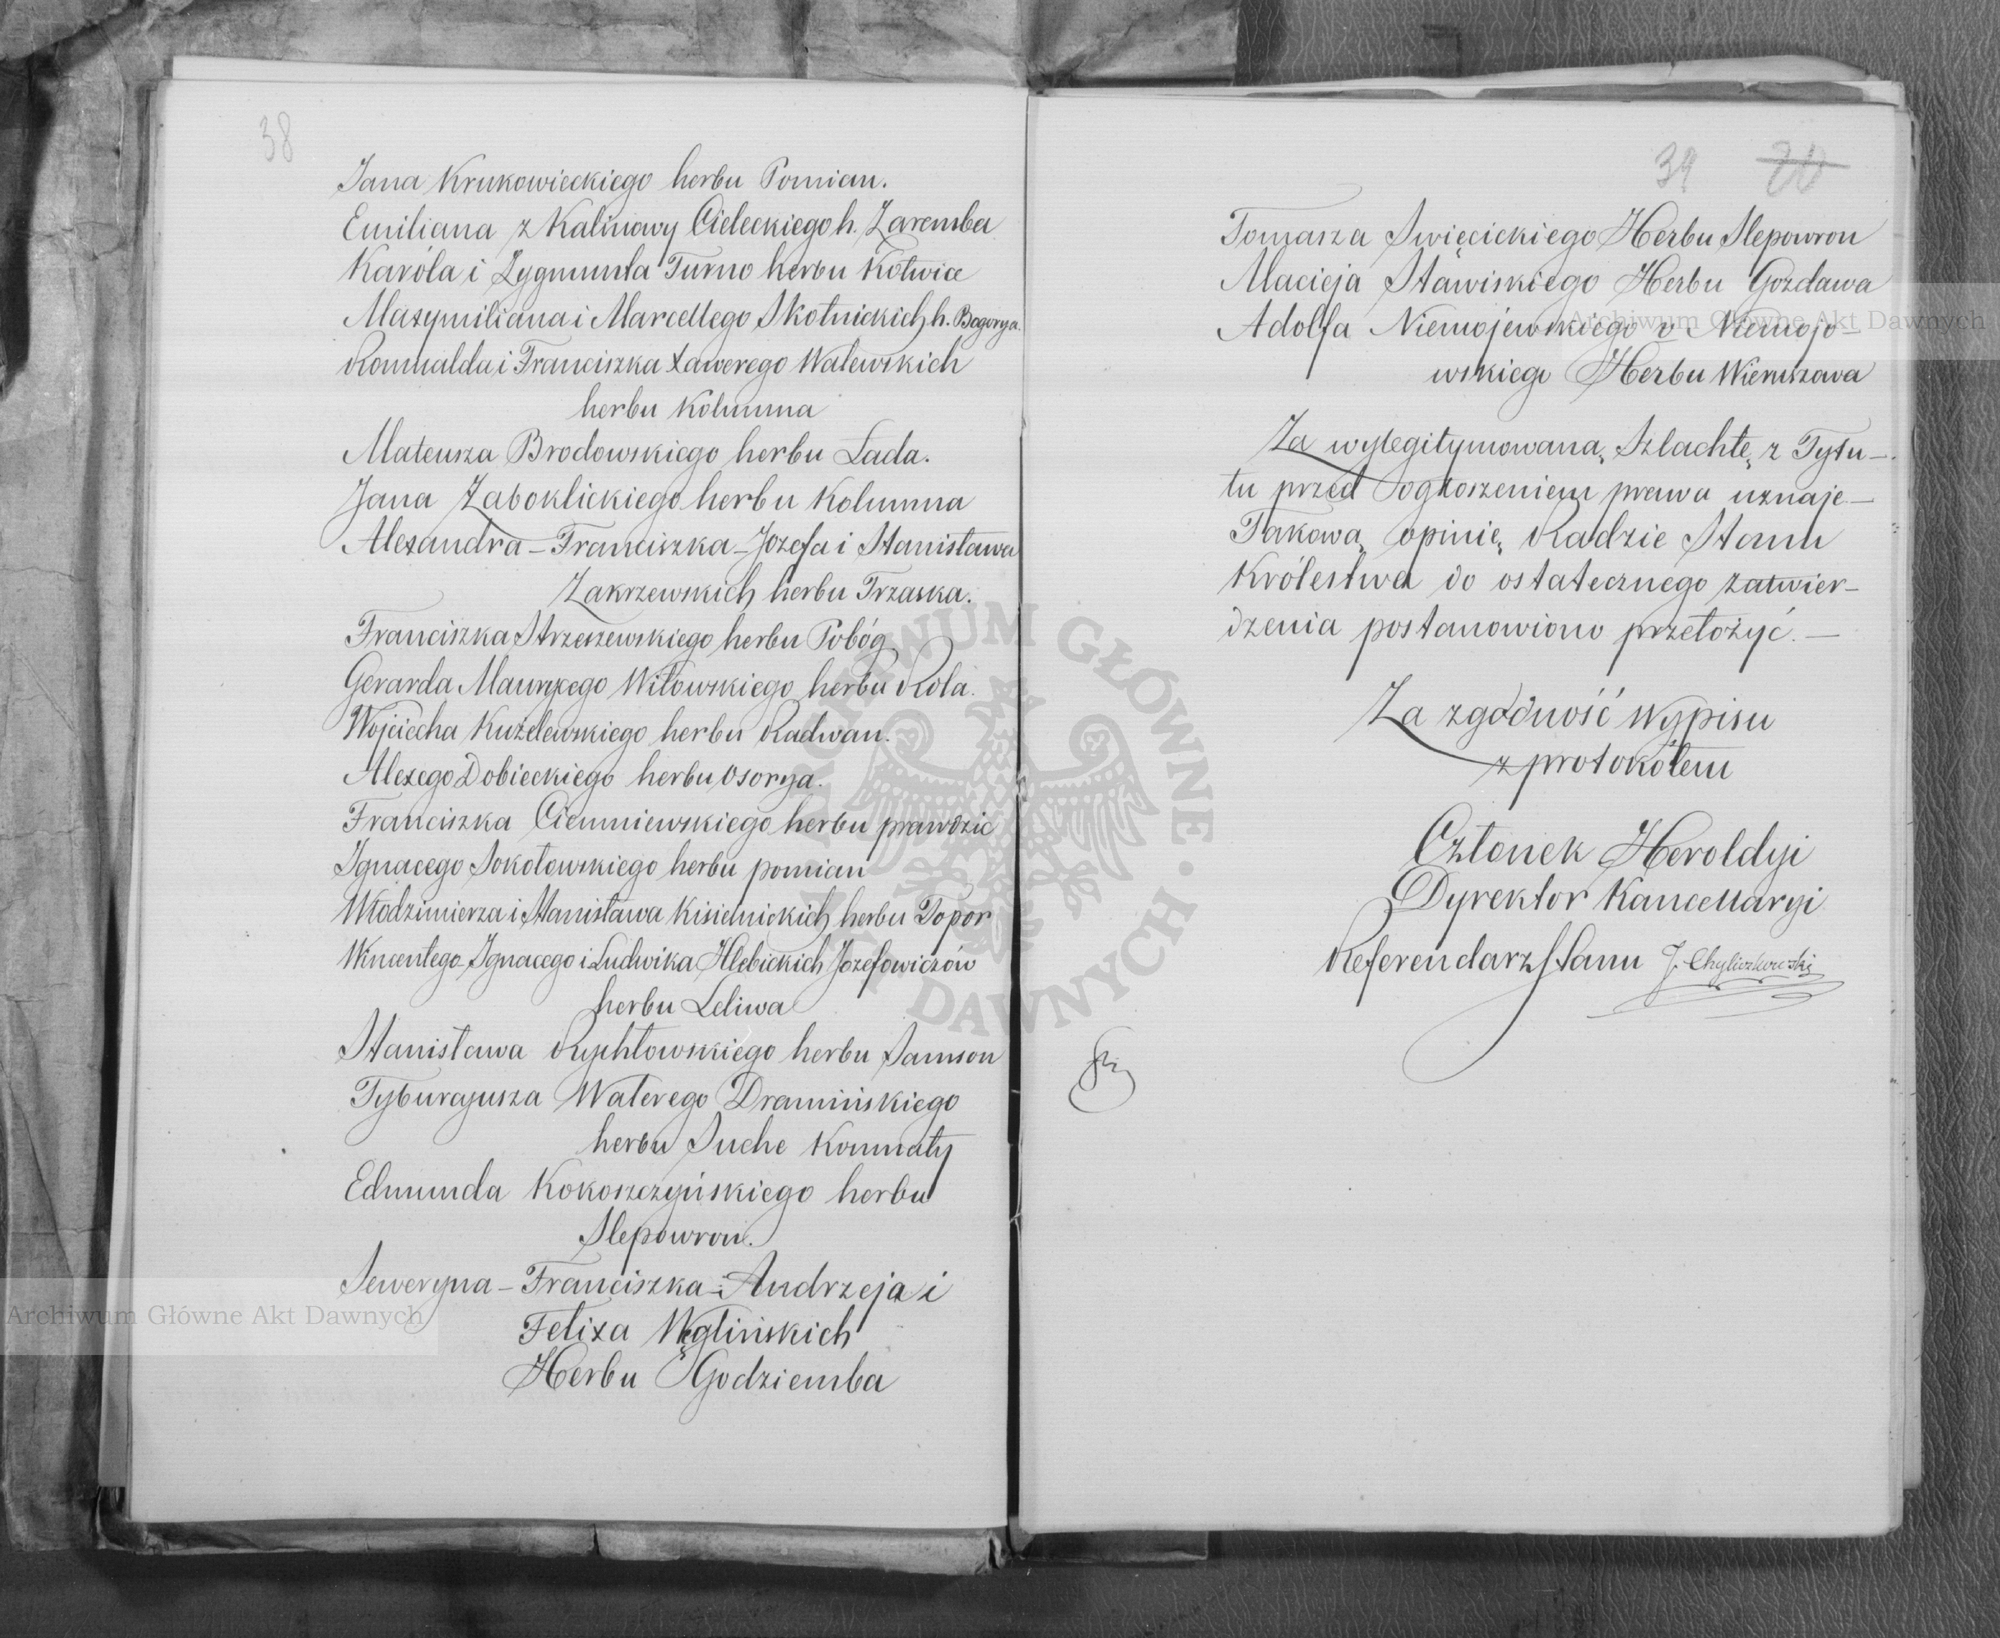 38
Jana Krukowieckiego herbu Pomian.
Emiliana z Kalinowy Cieleckiego h. Zaremba
Karóla i Zygmunta Turno herbu Kotwice
Maxymiliana i Marcellego Skotnickich h. Bogorya.
Romualda i Franciszka Xawerego Walewskich
herbu Kolumna
Mateusza Brodowskiego herbu Łada.
Jana Zaboklickiego herbu Kolumna
Alexandra – Franciszka – Józefa i Stanisława
Zakrzewskich herbu Trzaska.
Franciszka Strzeszewskiego herbu Pobóg
Gerarda Maurycego Witowskiego herbu Rola.
Wojciecha Kuželewskiego herbu Radwan.
Alexego Dobieckiego herbu Ossorya.
Franciszka Ciemniewskiego herbu prawdzic
Ignacego Sokołowskiego herbu pomian
Włodzimierza i Stanisława Kisielnickich herbu Topor
Wincentego Ignacego i Ludwika Hlebickich Józefowiczów
herbu Leliwa
Stanisława Rychłowskiego herbu Samson
Tyburcyusza Walerego Dramińskiego
herbu Suche Komnaty
Edmunda Kokoszczyńskiego herbu
Slepowron.
Seweryna – Franciszka – Andrzeja i
Felixa Węglińskich
Herbu Godziemba
39 20
Tomasza Swięcickiego Herbu Slepowron
Macieja Stawiskiego Herbu Gozdawa
Adolfa Niemojewskiego v. Niemojo–
wskiego Herbu Wieruszowa
Za wylegitymowaną Szlachtę z Tytu–
łu przed ogłoszeniem prawa uznaje –
Takową opinię Radzie Stanu
Królestwa do ostatecznego zatwier–
dzenia postanowiono przełożyć. –
Za zgodność wypisu
z protokółem
Członek Heroldyi
Dyrektor Kancellaryi
Referendarz Stanu J. Chyliczkowski
Archiwum Główne Akt Dawnych
Archiwum Główne Akt Dawnych
ARCHIWUM GŁÓWNE AKT DAWNYCH